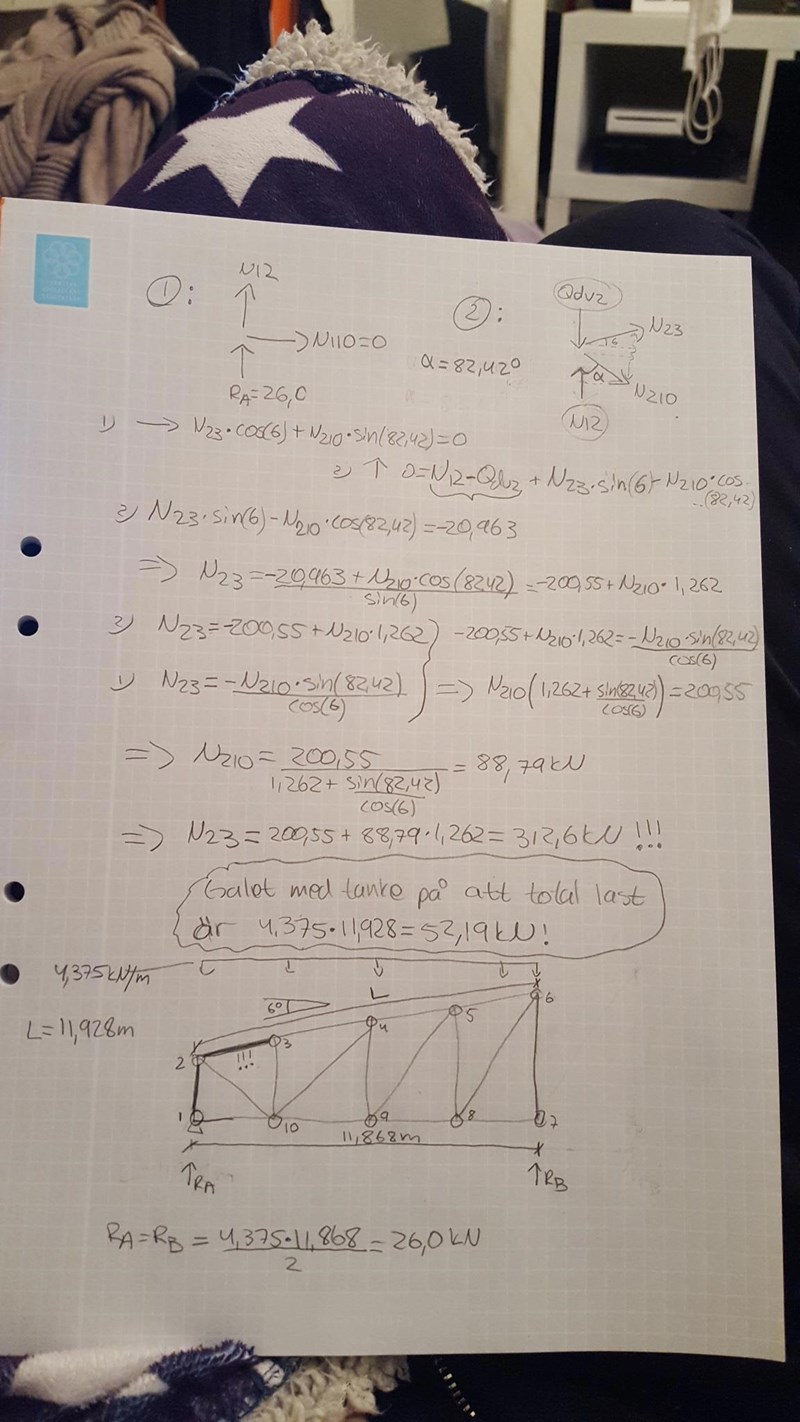 ①:
N12
N110=0
RA=26,0
②:
α=82,42°
Qdv2
N23
6
α
N210
N12
1) → N23·cos(6)+N210·sin(82,42)=0
2) ↑ 0=N12-Qdv2+N23·sin(6)-N210·cos..
..(82,42)
2) N23·sin(6)-N210·cos(82,42)=-20,963
=> N23=-20,963+N210·cos(8242)/sin(6)=-200,55+N210·1,262
2) N23=-200,55+N210·1,262
-200,55+N210·1,262=-N210·sin(82,42)/cos(6)
1) N23=-N210·sin(82,42)/cos(6)
=> N210(1,262+sin(82,42)/cos(6))=200,55
=> N210=200,55/1,262+sin(82,42)/cos(6)=88,79kN
=> N23=200,55+88,79·1,262=312,6kN !!!
Galet med tanke på att total last
är 4,375·11,928=52,19kN!
4,375kN/m
L
6°
L=11,928m
6
5
4
3
2
!!!
1
10
9
8
7
11,868m
↑RA
↑RB
RA=RB=4,375·11,868/2=26,0kN